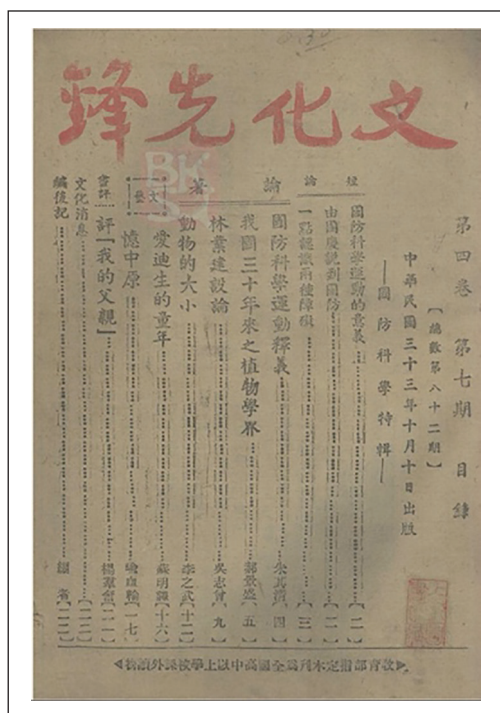 文化先鋒
第四卷 第七期 目錄
【總數第八十二期】
中華民國三十三年十月十日出版
—國防科學特輯—
短論
國防科學運動的意義……【二】
由國慶說到國防……【二】
一點認識兩種障礙……【三】
論著
國防科學運動釋義……朱其清【四】
我國三十年來之植物學界……郝景盛【五】
林業建設論……吳志曾【九】
動物的大小……李之武【十二】
文藝
愛迪生的童年……蘇明譯【十六】
憶中原……喻血輪【一七】
書評……評「我的父親」……楊群奮【二一】
文化消息……【二二】
編後記……編者【二二】
教育部指定本刊為全國高中以上學校課外讀物
BK